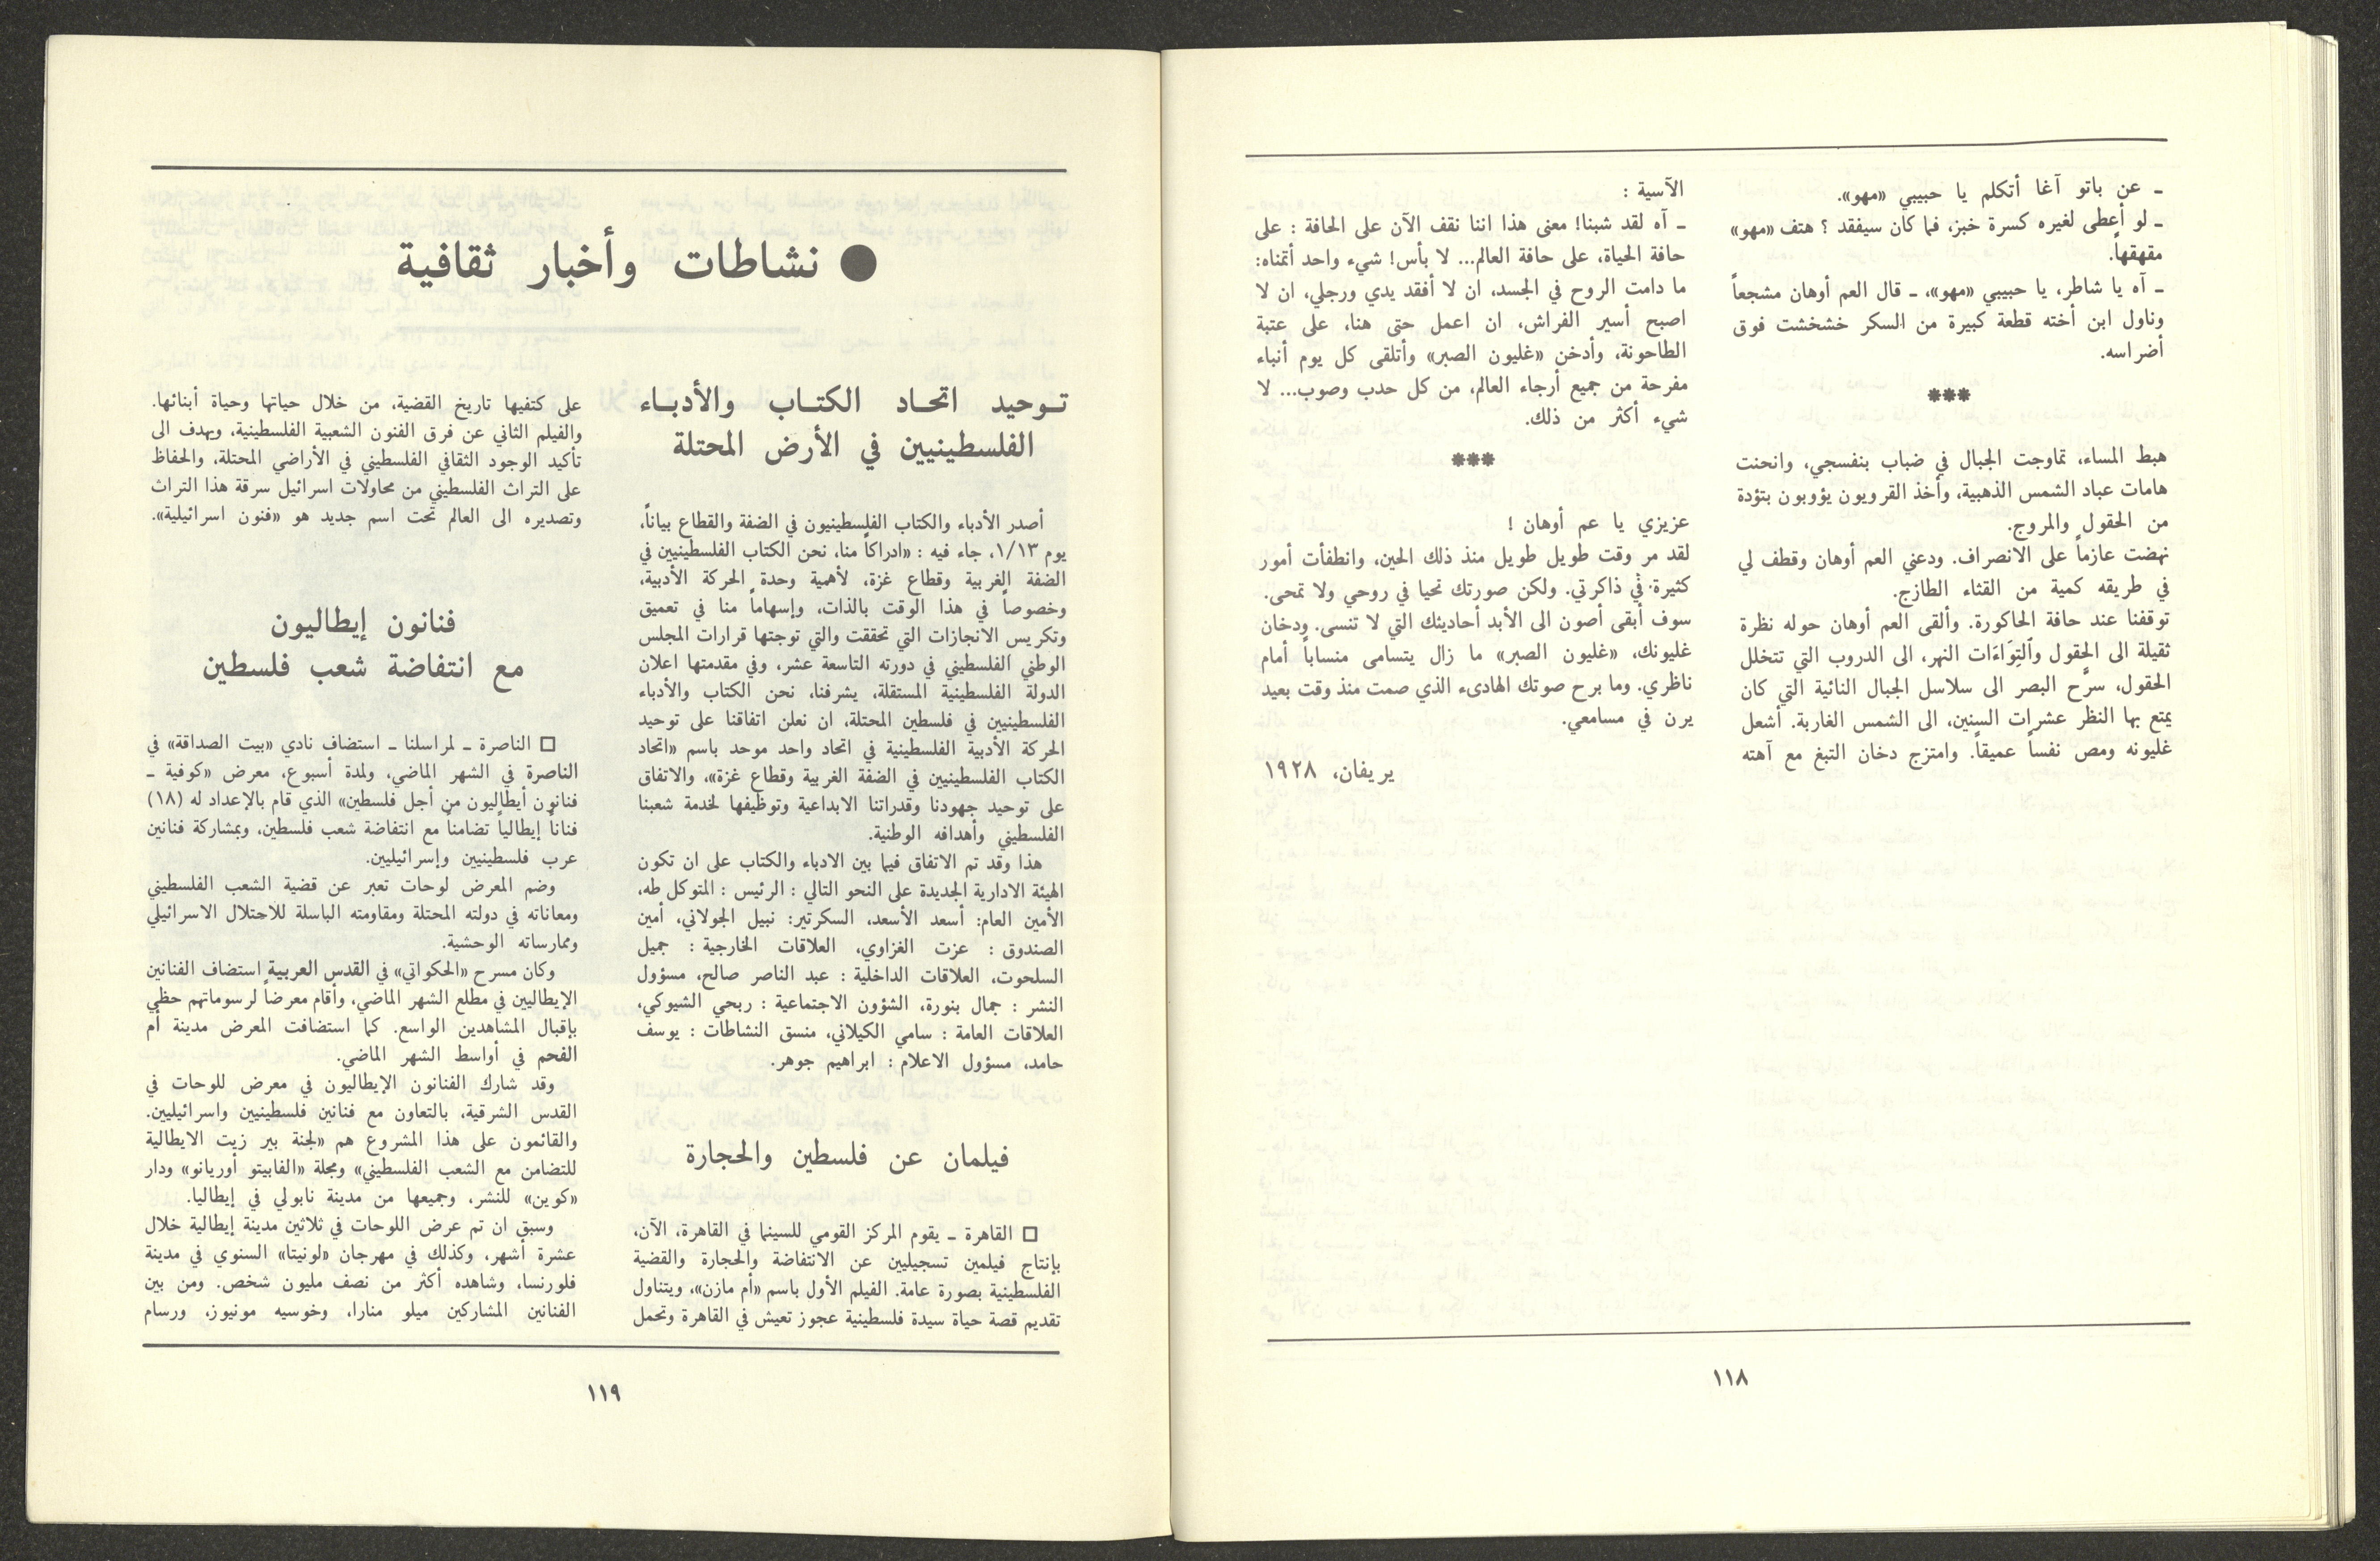 ـ عن باتو آغا أتكلم يا حبيبي «مهو».
ـ لو أعطى لغيره كسرة خبز، فما كان سيفقد ؟ هتف «مهو»
مقهقهاً.
ـ آه يا شاطر، يا حبيبي «مهو»، ـ قال العم أوهان مشجعاً
وناول ابن أخته قطعة كبيرة من السكر خشخشت فوق
أضراسه.
***
هبط المساء، تماوجت الجبال في ضباب بنفسجي، وانحنت
هامات عباد الشمس الذهبية، وأخذ القرويون يؤوبون بتؤدة
من الحقول والمروج.
نهضت عازماً على الانصراف. ودعني العم أوهان وقطف لي
في طريقه كمية من القثاء الطازج.
توقفنا عند حافة الحاكورة. وألقى العم أوهان حوله نظرة
ثقيلة الى الحقول وٱلتِوَاءَات النهر، الى الدروب التي تتخلل
الحقول، سرَّح البصر الى سلاسل الجبال النائية التي كان
يمتع بها النظر عشرات السنين، الى الشمس الغاربة. أشعل
غليونه ومص نفساً عميقاً. وامتزج دخان التبغ مع آهته
الآسية :
ـ آه لقد شبنا! معنى هذا اننا نقف الآن على الحافة : على
حافة الحياة، على حافة العالم... لا بأس! شيء واحد أتمناه:
ما دامت الروح في الجسد، ان لا أفقد يدي ورجلي، ان لا
اصبح أسير الفراش، ان اعمل حتى هنا، على عتبة
الطاحونة، وأدخن «غليون الصبر» وأتلقى كل يوم أنباء
مفرحة من جميع أرجاء العالم، من كل حدب وصوب... لا
شيء أكثر من ذلك.
***
عزيزي يا عم أوهان !
لقد مر وقت طويل طويل منذ ذلك الحين، وانطفأت أمور
كثيرة في ذاكرتي. ولكن صورتك تحيا في روحي ولا تمحى.
سوف أبقى أصون الى الأبد أحاديثك التي لا تنسى. ودخان
غليونك، «غليون الصبر» ما زال يتسامى منساباً أمام
ناظري. وما برح صوتك الهادىء الذي صمت منذ وقت بعيد
يرن في مسامعي.
يريفان، ١٩٢٨
١١٨
● نشاطات وأخبار ثقافية
توحيد اتحاد الكتاب والأدباء
الفلسطينيين في الأرض المحتلة
أصدر الأدباء والكتاب الفلسطينيون في الضفة والقطاع بياناً،
يوم ١/١٣، جاء فيه : «ادراكاً منا، نحن الكتاب الفلسطينيين في
الضفة الغربية وقطاع غزة، لأهمية وحدة الحركة الأدبية،
وخصوصاً في هذا الوقت بالذات، وإسهاماً منا في تعميق
وتكريس الانجازات التي تحققت والتي توجتها قرارات المجلس
الوطني الفلسطيني في دورته التاسعة عشر، وفي مقدمتها اعلان
الدولة الفلسطينية المستقلة، يشرفنا، نحن الكتاب والأدباء
الفلسطينيين في فلسطين المحتلة، ان نعلن اتفاقنا على توحيد
الحركة الأدبية الفلسطينية في اتحاد واحد موحد باسم «اتحاد
الكتاب الفلسطينيين في الضفة الغربية وقطاع غزة»، والاتفاق
على توحيد جهودنا وقدراتنا الابداعية وتوظيفها لخدمة شعبنا
الفلسطيني وأهدافه الوطنية.
هذا وقد تم الاتفاق فيما بين الادباء والكتاب على ان تكون
الهيئة الادارية الجديدة على النحو التالي : الرئيس : المتوكل طه،
الأمين العام: أسعد الأسعد، السكرتير: نبيل الجولاني، أمين
الصندوق : عزت الغزاوي، العلاقات الخارجية : جميل
السلحوت، العلاقات الداخلية : عبد الناصر صالح، مسؤول
النشر : جمال بنورة، الشؤون الاجتماعية : ربحي الشيوكي،
العلاقات العامة : سامي الكيلاني، منسق النشاطات : يوسف
حامد، مسؤول الاعلام : ابراهيم جوهر.
فيلمان عن فلسطين والحجارة
□ القاهرة ـ يقوم المركز القومي للسينما في القاهرة، الآن،
بإنتاج فيلمين تسجيليين عن الانتفاضة والحجارة والقضية
الفلسطينية بصورة عامة. الفيلم الأول باسم «أم مازن»، ويتناول
تقديم قصة حياة سيدة فلسطينية عجوز تعيش في القاهرة وتحمل
على كتفيها تاريخ القضية، من خلال حياتها وحياة أبنائها.
والفيلم الثاني عن فرق الفنون الشعبية الفلسطينية، ويهدف الى
تأكيد الوجود الثقافي الفلسطيني في الأراضي المحتلة، والحفاظ
على التراث الفلسطيني من محاولات اسرائيل سرقة هذا التراث
وتصديره الى العالم تحت اسم جديد هو «فنون اسرائيلية».
فنانون إيطاليون
مع انتفاضة شعب فلسطين
□ الناصرة ـ لمراسلنا ـ استضاف نادي «بيت الصداقة» في
الناصرة في الشهر الماضي، ولمدة أسبوع، معرض «كوفية ـ
فنانون أيطاليون من أجل فلسطين» الذي قام بالإعداد له (١٨)
فناناً إيطالياً تضامناً مع انتفاضة شعب فلسطين، وبمشاركة فنانين
عرب فلسطينيين وإسرائيليين.
وضم المعرض لوحات تعبر عن قضية الشعب الفلسطيني
ومعاناته في دولته المحتلة ومقاومته الباسلة للاحتلال الاسرائيلي
وممارساته الوحشية.
وكان مسرح «الحكواتي» في القدس العربية استضاف الفنانين
الإيطاليين في مطلع الشهر الماضي، وأقام معرضاً لرسوماتهم حظي
بإقبال المشاهدين الواسع. كما استضافت المعرض مدينة أم
الفحم في أواسط الشهر الماضي.
وقد شارك الفنانون الإيطاليون في معرض للوحات في
القدس الشرقية، بالتعاون مع فنانين فلسطينيين واسرائيليين.
والقائمون على هذا المشروع هم «لجنة بير زيت الايطالية
للتضامن مع الشعب الفلسطيني» ومجلة «الفابيتو أوريانو» ودار
«كوين» للنشر، وجميعها من مدينة نابولي في إيطاليا.
وسبق ان تم عرض اللوحات في ثلاثين مدينة إيطالية خلال
عشرة أشهر، وكذلك في مهرجان «لونيتا» السنوي في مدينة
فلورنسا، وشاهده أكثر من نصف مليون شخص. ومن بين
الفنانين المشاركين ميلو منارا، وخوسيه مونيوز، ورسام
١١٩